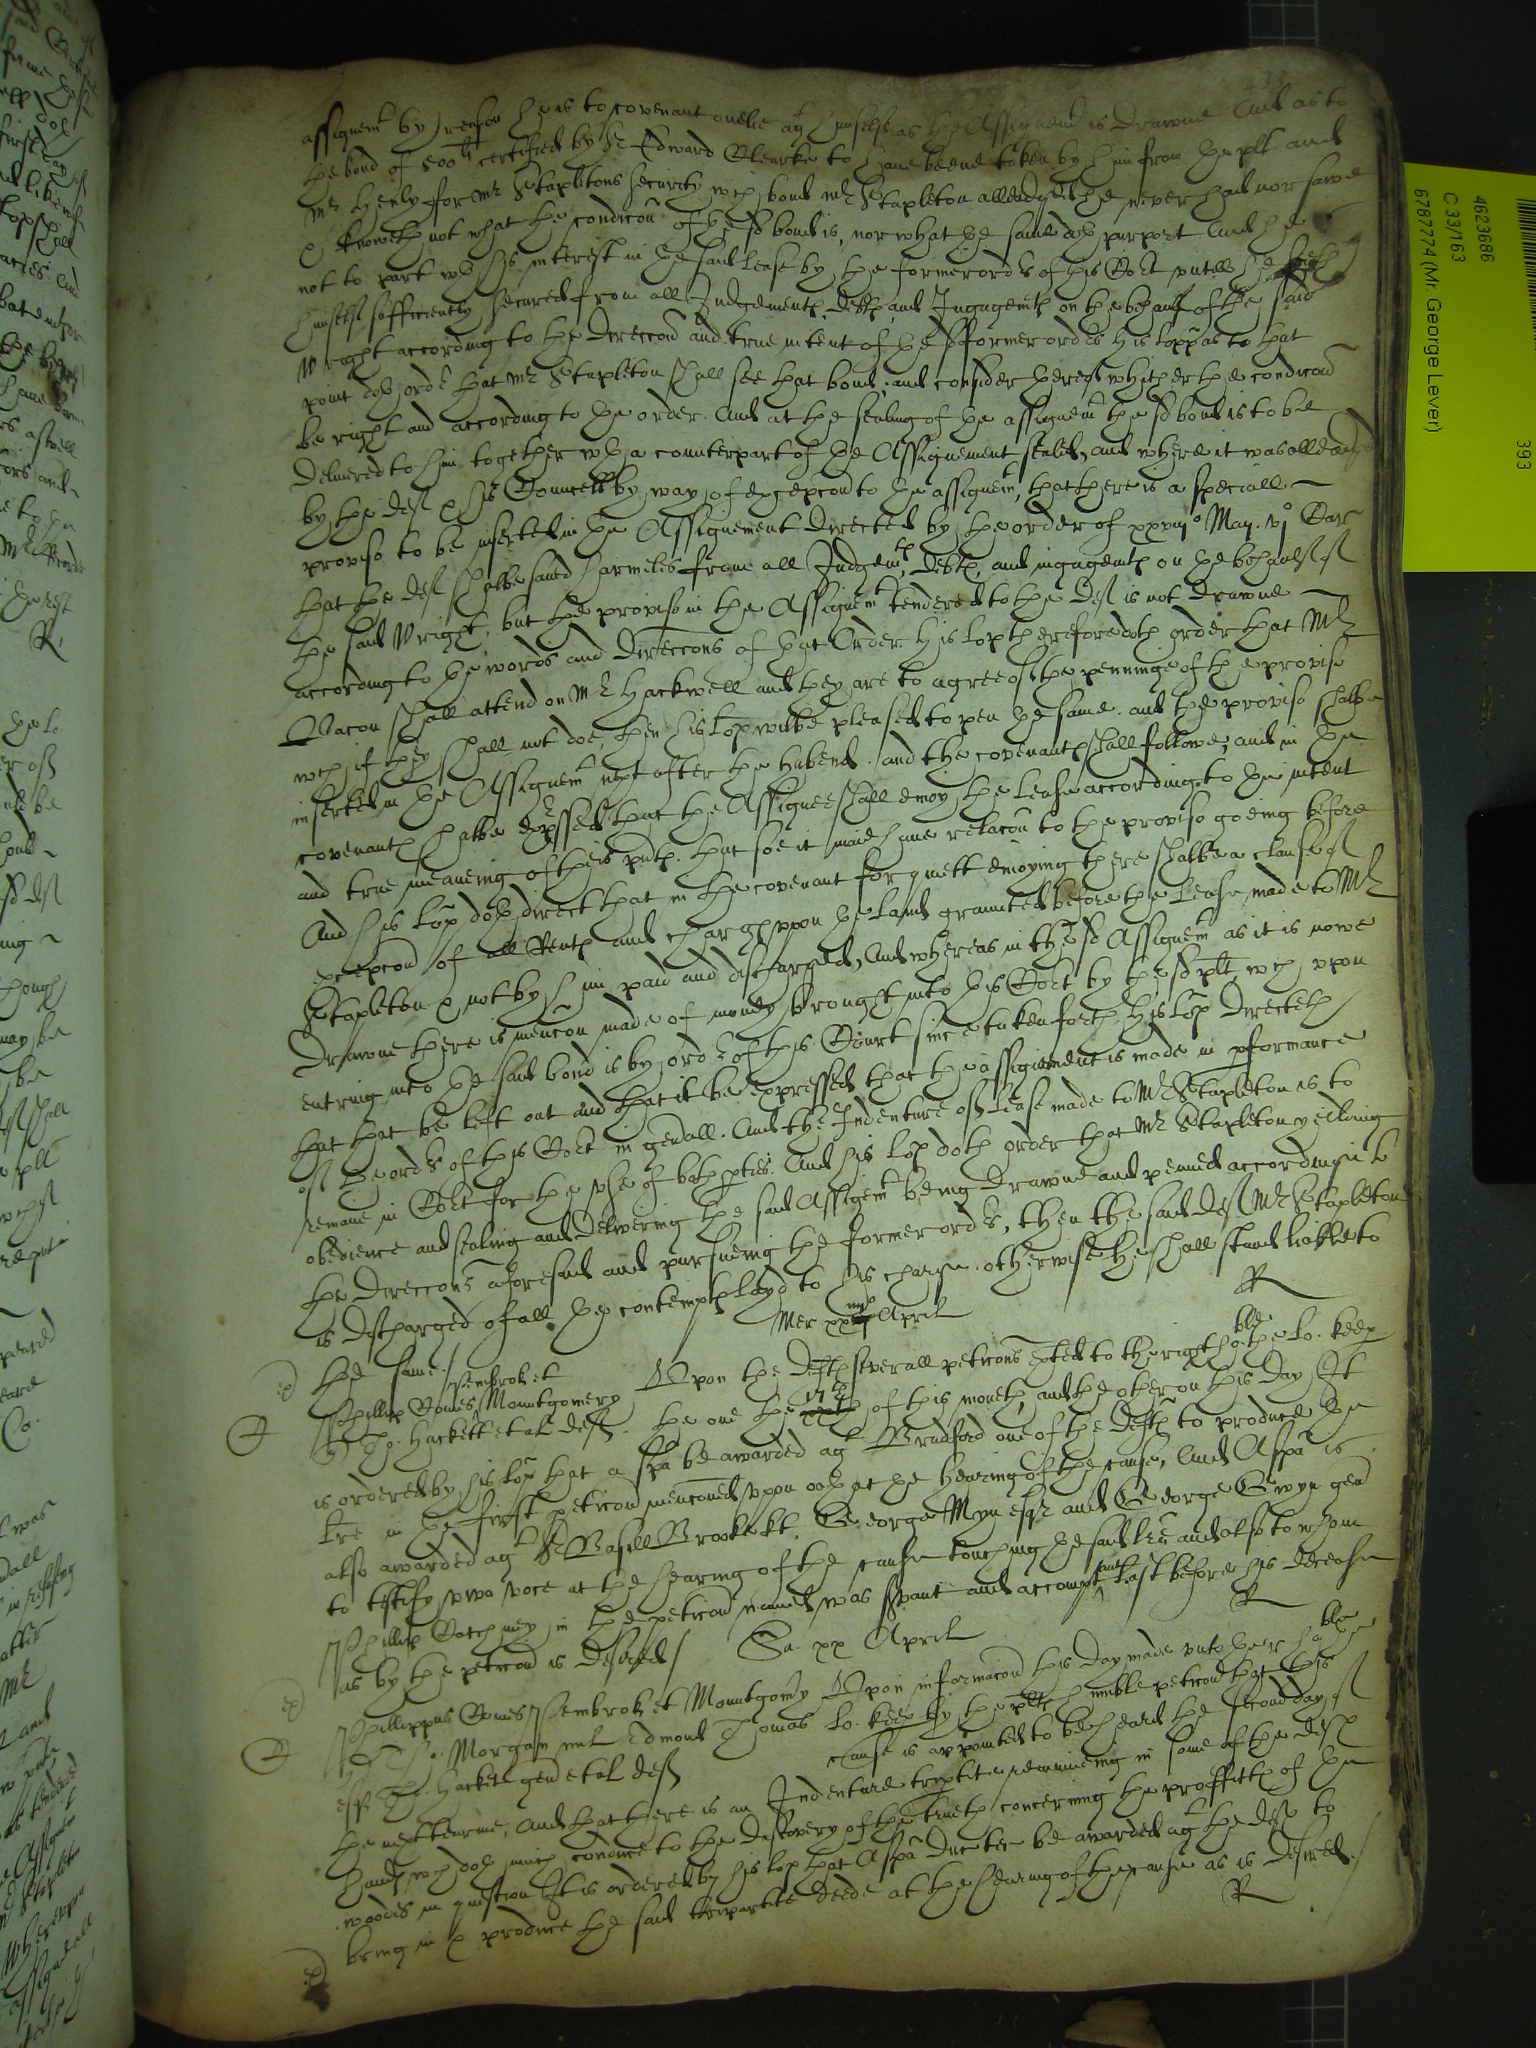 assignemt by reason he is to covenant onelie agt himselfe as the Assignemt is drawne And as to
the bond of 500li certified by Sr Edward Clearke to have beene taken by him from the plt and
Mr Henly for Mr Stapletons security wch bond Mr Stapleton alleadgeth he never had nor sawe
& knoweth not what the condicon of the sd bond is, nor what the same doth purport And he is
not to part wth his interest in the said lease by the former ordrs of this Cort untill he
himselfe sufficiently secured from all Judgements, debts, and Ingagemts on the behalf of the said
Wright according to the direccon and true intent of the sd former ordrs his Lopp as to that
point doth ordr that Mr Stapleton shall see that bond, and consider thereof whither the condicon
be right and according to the order. And at the sealing of the assignemt the sd bond is to be
delivered to him together wth a counterpart of the Assignement sealed, and where it was alleadged
by the deft & his Councell by way of excepcon to the assignemt, that there is a speciall
proviso to be inserted in the Assignement directed by the order of xxxmo May. vjo Car
that the deft shalbe saved harmeles from all Judgemts, debts, and ingagemts on the behalfe of
the said Wright, but the proviso in the Assignemt tendered to the deft is not drawne
according to the words and direccons of that Order. His Lopp therefore doth order that Mr
Bacon shall attend on Mr Hackwell and they are to agree of the penninge of the proviso
wch if they shall not doe, then his Lopp wilbe pleased to pen the same. and the proviso shalbe
inserted in the Assignemt next after the Habend. and the covenants shall followe, and in the
covenants shalbe expssed that the Assignee shall enioy the lease according to the intent
and true meaneing of theis pnts. that soe it maie have relacon to the proviso going before
And his Lopp doth direct that in the covenant for quiett enioying there shalbe a clause of
excepcon of all Rents and charges uppon the land graunted before the lease made to Mr
Stapleton & not by him paid and discharged, And whereas in the sd Assignemt as it is nowe
drawne there is mencon made of money brought into this Cort by the sd plt wch upon
entring into the said bond is by ordr of this Court since taken forth his Lopp directeth
that that be left out and that it be expressed that the assignement is made in pformance
of the ordrs of this Cort in genall. And the Indenture of lease made to Mr Stapleton is to
remaine in Cort for the use of both pties. And his Lopp doth order that Mr Stapleton yeilding
obedience and sealing and delivering the said Assignemt being drawne and penned according to
the direccons aforesaid and pursueing the former ordrs, then the said deft Mr Stapleton
is discharged of all the contempts layd to his charge. otherwise he shall stand liable to
the same./ R
Mer xxiiijo April
Phillip Comes Pembrok et Mountgomery
Tho. Hackett et al defts. Upon the defts severall peticons exted to the right hoble the lo. keep
the one the 17th of this moneth, and the other on this day It
is ordered by his Lopp that a spa be awarded agt Bradford one of the defts to produce the
lre in the first peticon mencioned uppon oath at the hearing of the cause, And A spa is
also awarded agt Sr Basill Brooke kt. George Myn esqr and George Gwyn gent
to testify viva voce at the hearing of the cause touching the said lre and also to whom
Phillip Cotchmey in the peticon named was srvant and accomptant last before his decease
as by the peticon is desired/ R
Sa. xx April
Phillippus Comes Pembrok et Mountgomy Upon informacon this day made unto the right hoble
Morgan mil Edmond Thomas lo. keep by the plts humble peticon that this
esqr Tho. Hackett gen et al defts cause is appointed to be heard the second day of
the next tearme, And that there is an Indenture triptite remaineing in some of the defts
hands wch doth much conduce to the discovery of the trueth concerning the proffitts of the
woods in question It is ordered by his Lopp that A spa duc tec be awarded agt the defts to
bring in & produce the said tripartite deede at the hearing of the cause as is desired./
R
4623686
C 33/163
6787774 (Mr. George Lever)
393